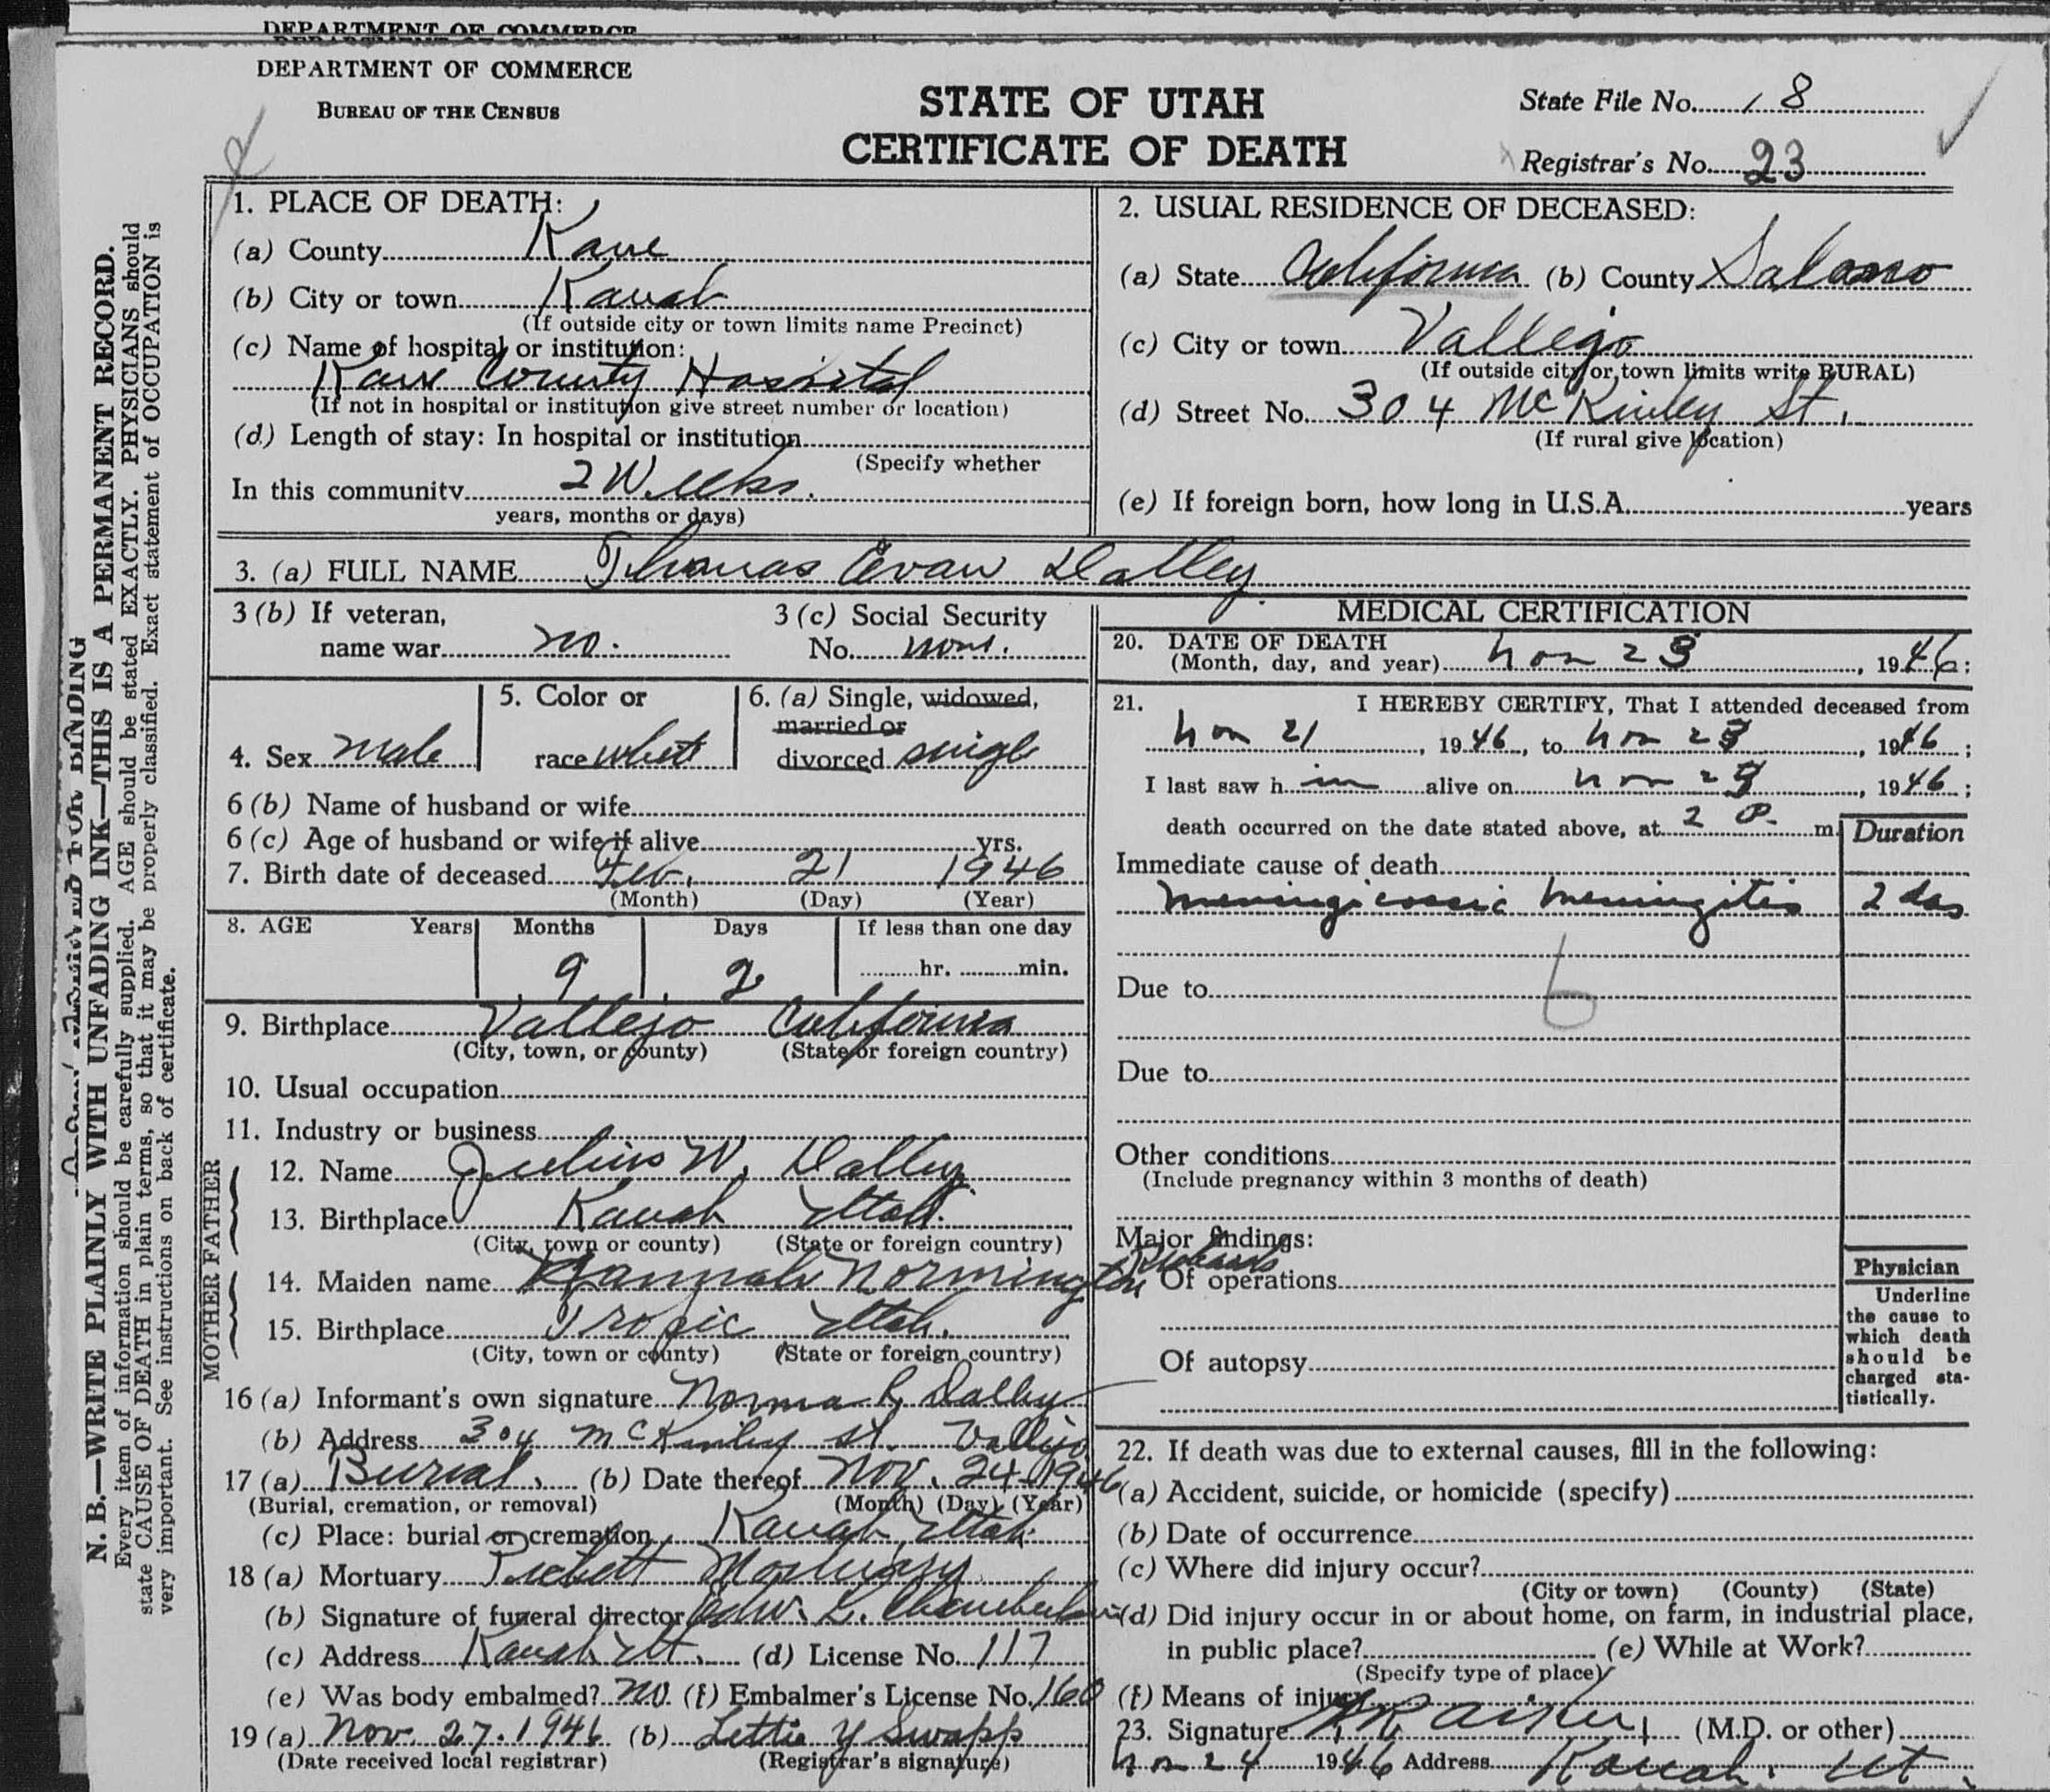 DEPARTMENT OF COMMERCE
DEPARTMENT OF COMMERCE
BUREAU OF THE CENSUS
STATE OF UTAH
CERTIFICATE OF DEATH
State File No. 18
Registrar's No. 23
N. B.—WRITE PLAINLY WITH UNFADING INK—THIS IS A PERMANENT RECORD.
Every item of information should be carefully supplied. AGE should be stated EXACTLY. PHYSICIANS should
state CAUSE OF DEATH in plain terms, so that it may be properly classified. Exact statement of OCCUPATION is
very important. See instructions on back of certificate.
1. PLACE OF DEATH:
(a) County Kane
(b) City or town Kanab
(If outside city or town limits name Precinct)
(c) Name of hospital or institution:
Kane County Hospital
(If not in hospital or institution give street number or location)
(d) Length of stay: In hospital or institution
(Specify whether
In this community 2 Weeks.
years, months or days)
2. USUAL RESIDENCE OF DECEASED:
(a) State California (b) County Salano
(c) City or town Vallejo
(If outside city or town limits write RURAL)
(d) Street No. 304 McKinley St.
(If rural give location)
(e) If foreign born, how long in U.S.A. years
3. (a) FULL NAME Thomas Evan Dalley
3 (b) If veteran,
name war no.
3 (c) Social Security
No. none.
4. Sex male
5. Color or
race white
6. (a) Single, widowed,
married or
divorced single
6 (b) Name of husband or wife
6 (c) Age of husband or wife if alive yrs.
7. Birth date of deceased Feb. 21 1946
(Month) (Day) (Year)
8. AGE Years Months Days If less than one day
9 2 hr. min.
9. Birthplace Vallejo California
(City, town, or county) (State or foreign country)
10. Usual occupation
11. Industry or business
FATHER
12. Name Julius W. Dalley
13. Birthplace Kanab Utah.
(City, town or county) (State or foreign country)
MOTHER
14. Maiden name Hannah Normington Richards
15. Birthplace Tropic Utah.
(City, town or county) (State or foreign country)
16 (a) Informant's own signature Norma R Dalley
(b) Address 304 McKinley st. Vallejo
17 (a) Burial. (b) Date thereof Nov. 24 - 1946
(Burial, cremation, or removal) (Month) (Day) (Year)
(c) Place: burial or cremation Kanab, Utah.
18 (a) Mortuary Mortuary
(b) Signature of funeral director Edw. L. Chamberlain
(c) Address Kanab Ut. (d) License No. 117
(e) Was body embalmed? no. (f) Embalmer's License No. 160
19 (a) Nov. 27. 1946 (b) Lettie Y Swapp
(Date received local registrar) (Registrar's signature)
MEDICAL CERTIFICATION
20. DATE OF DEATH
(Month, day, and year) Nov 23, 1946;
21. I HEREBY CERTIFY, That I attended deceased from
Nov 21, 1946, to Nov 23, 1946;
I last saw him alive on Nov 23, 1946;
death occurred on the date stated above, at 2 P. m.
Duration
Immediate cause of death
meningicoccic meningitis 2 das
6
Due to
Due to
Other conditions
(Include pregnancy within 3 months of death)
Major findings:
Of operations
Of autopsy
Physician
Underline
the cause to
which death
should be
charged sta-
tistically.
22. If death was due to external causes, fill in the following:
(a) Accident, suicide, or homicide (specify)
(b) Date of occurrence
(c) Where did injury occur?
(City or town) (County) (State)
(d) Did injury occur in or about home, on farm, in industrial place,
in public place? (e) While at Work?
(Specify type of place)
(f) Means of injury
23. Signature Aiken (M.D. or other)
Nov 24 1946 Address Kanab, Ut